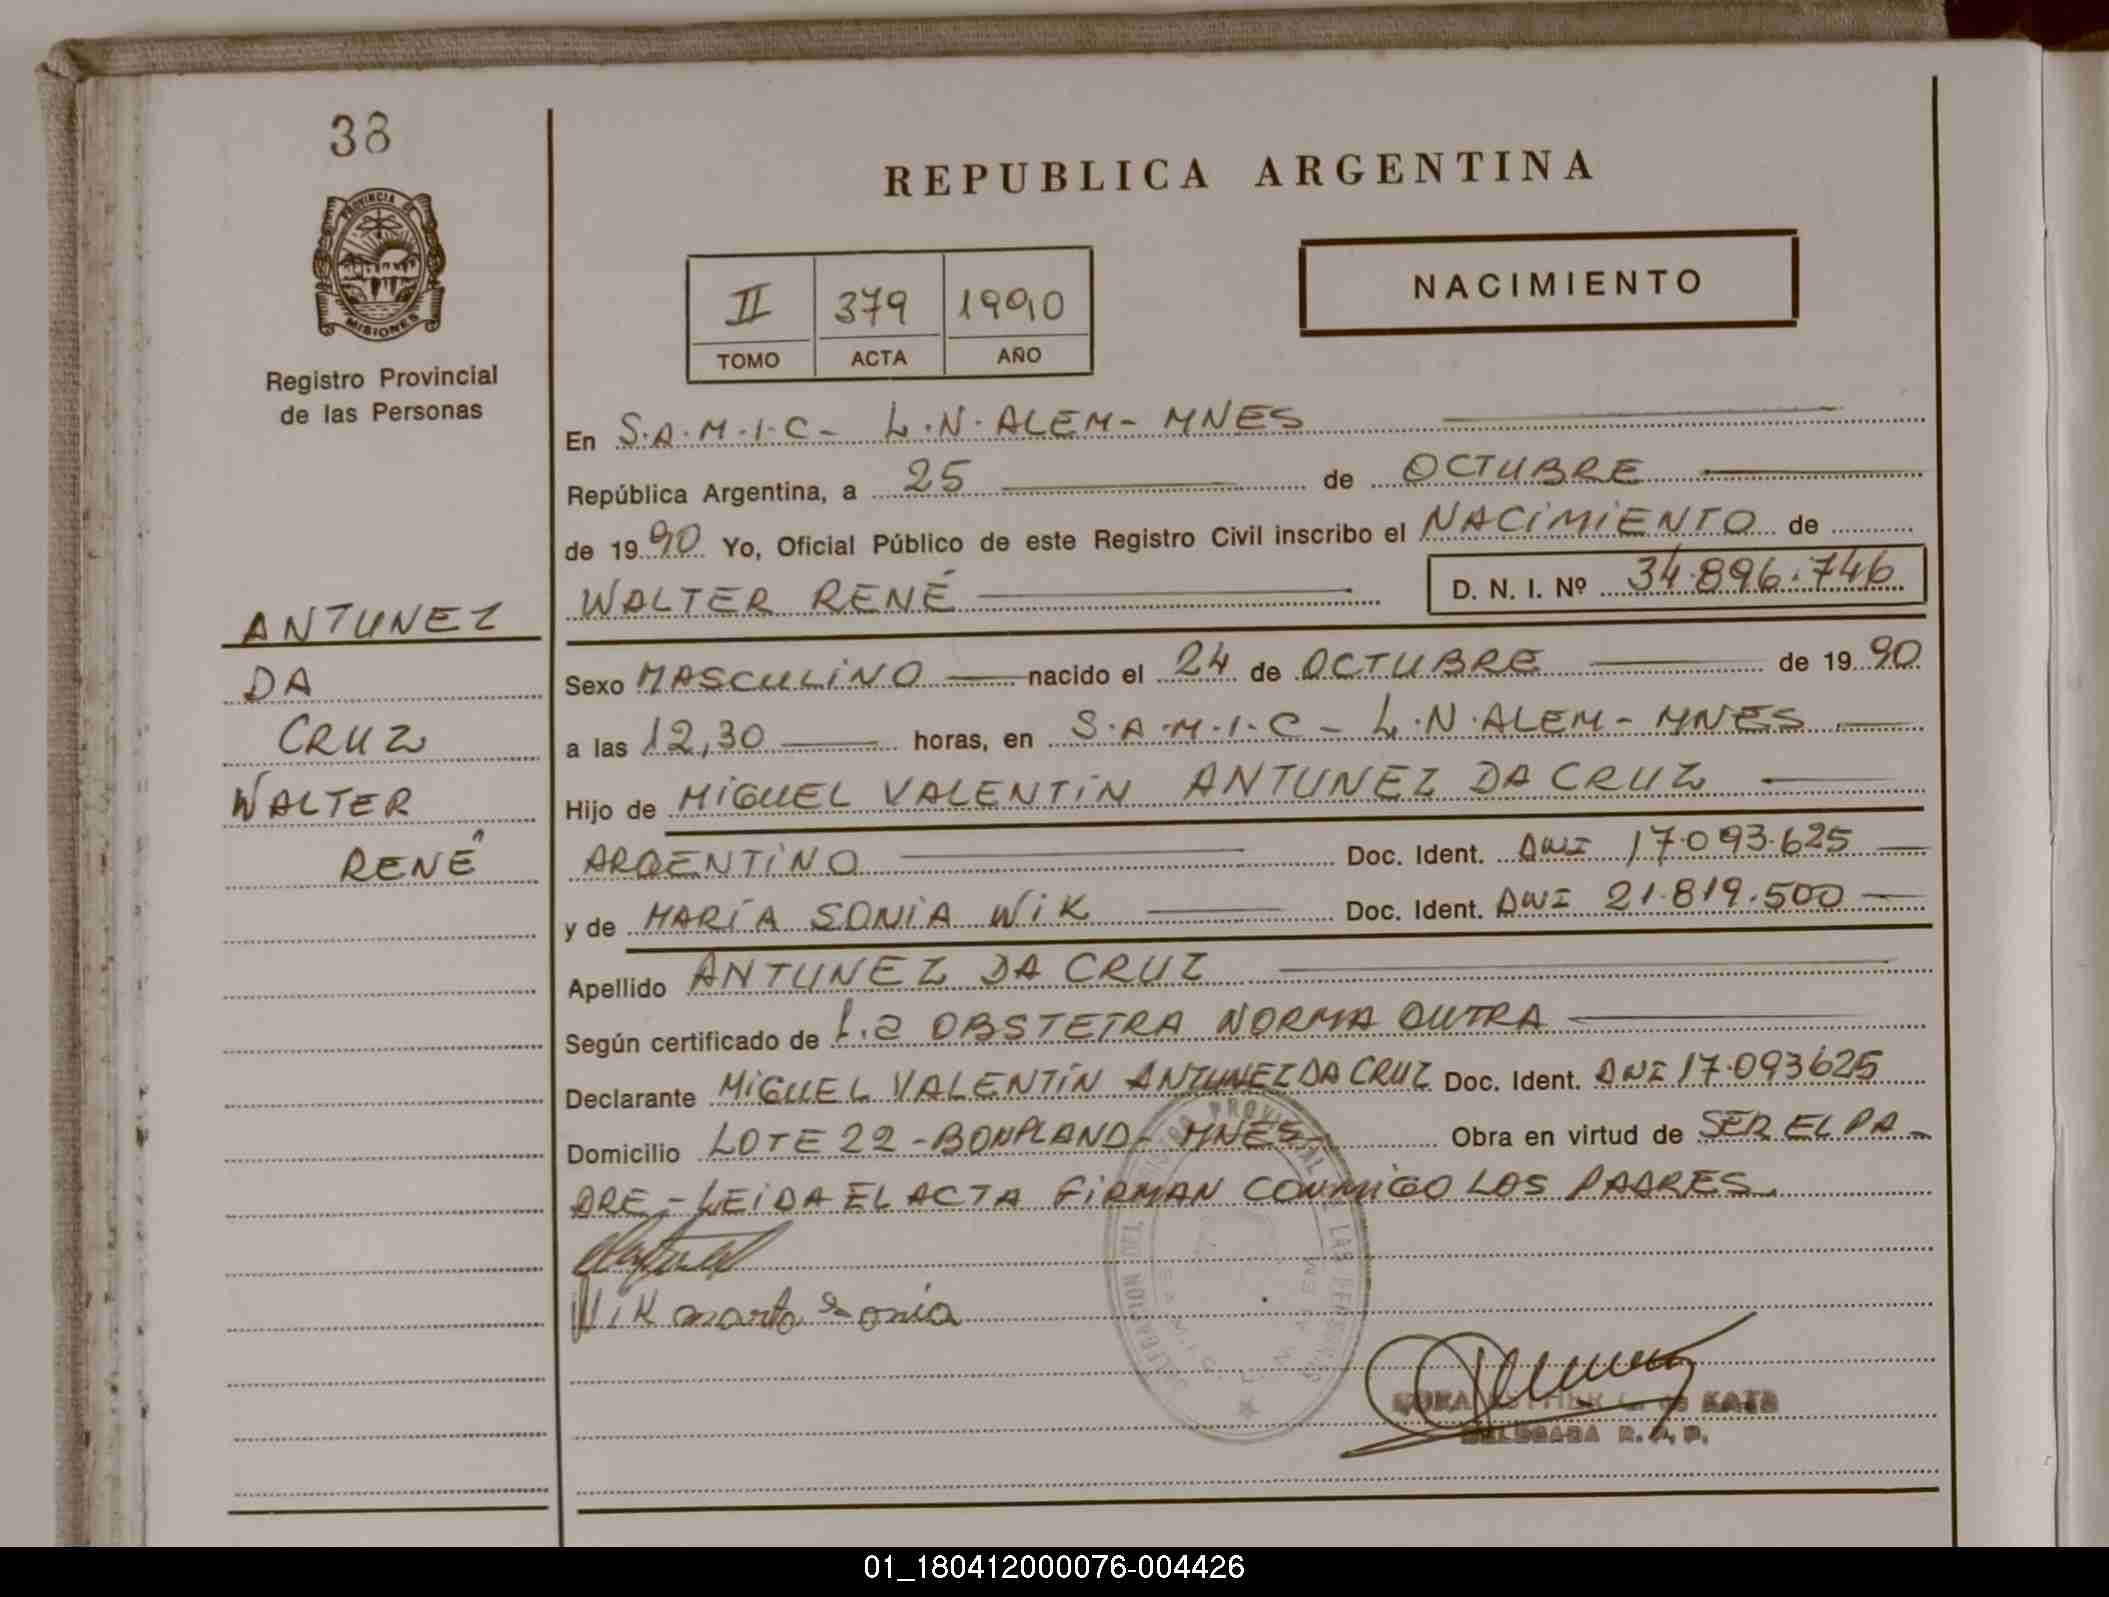 38
REPUBLICA ARGENTINA
PROVINCIA DE
MISIONES
Registro Provincial
de las Personas
II 379 1990
TOMO ACTA AÑO
NACIMIENTO
En S.A.M.I.C- L.N.ALEM- MNES
República Argentina, a 25 de OCTUBRE
de 1990 Yo, Oficial Público de este Registro Civil inscribo el NACIMIENTO de
WALTER RENÉ D. N. I. Nº 34.896.746
ANTUNEZ
DA
CRUZ
WALTER
RENÉ
Sexo MASCULINO nacido el 24 de OCTUBRE de 1990
a las 12,30 horas, en S.A.M.I.C- L.N.ALEM- MNES
Hijo de MIGUEL VALENTÍN ANTUNEZ DA CRUZ
ARGENTINO Doc. Ident. DNI 17.093.625
y de MARÍA SONIA WIK Doc. Ident. DNI 21.819.500
Apellido ANTUNEZ DA CRUZ
Según certificado de l.a OBSTETRA NORMA DUTRA
Declarante MIGUEL VALENTÍN ANTUNEZ DA CRUZ Doc. Ident. DNI 17.093625
Domicilio LOTE 22 -BONPLAND- MNES- Obra en virtud de SER EL PA-
DRE - LEIDA EL ACTA FIRMAN CONMIGO LOS PADRES.
WiK marta Sonia
de KATZ
DELEGADA R. P. P.
01_180412000076-004426